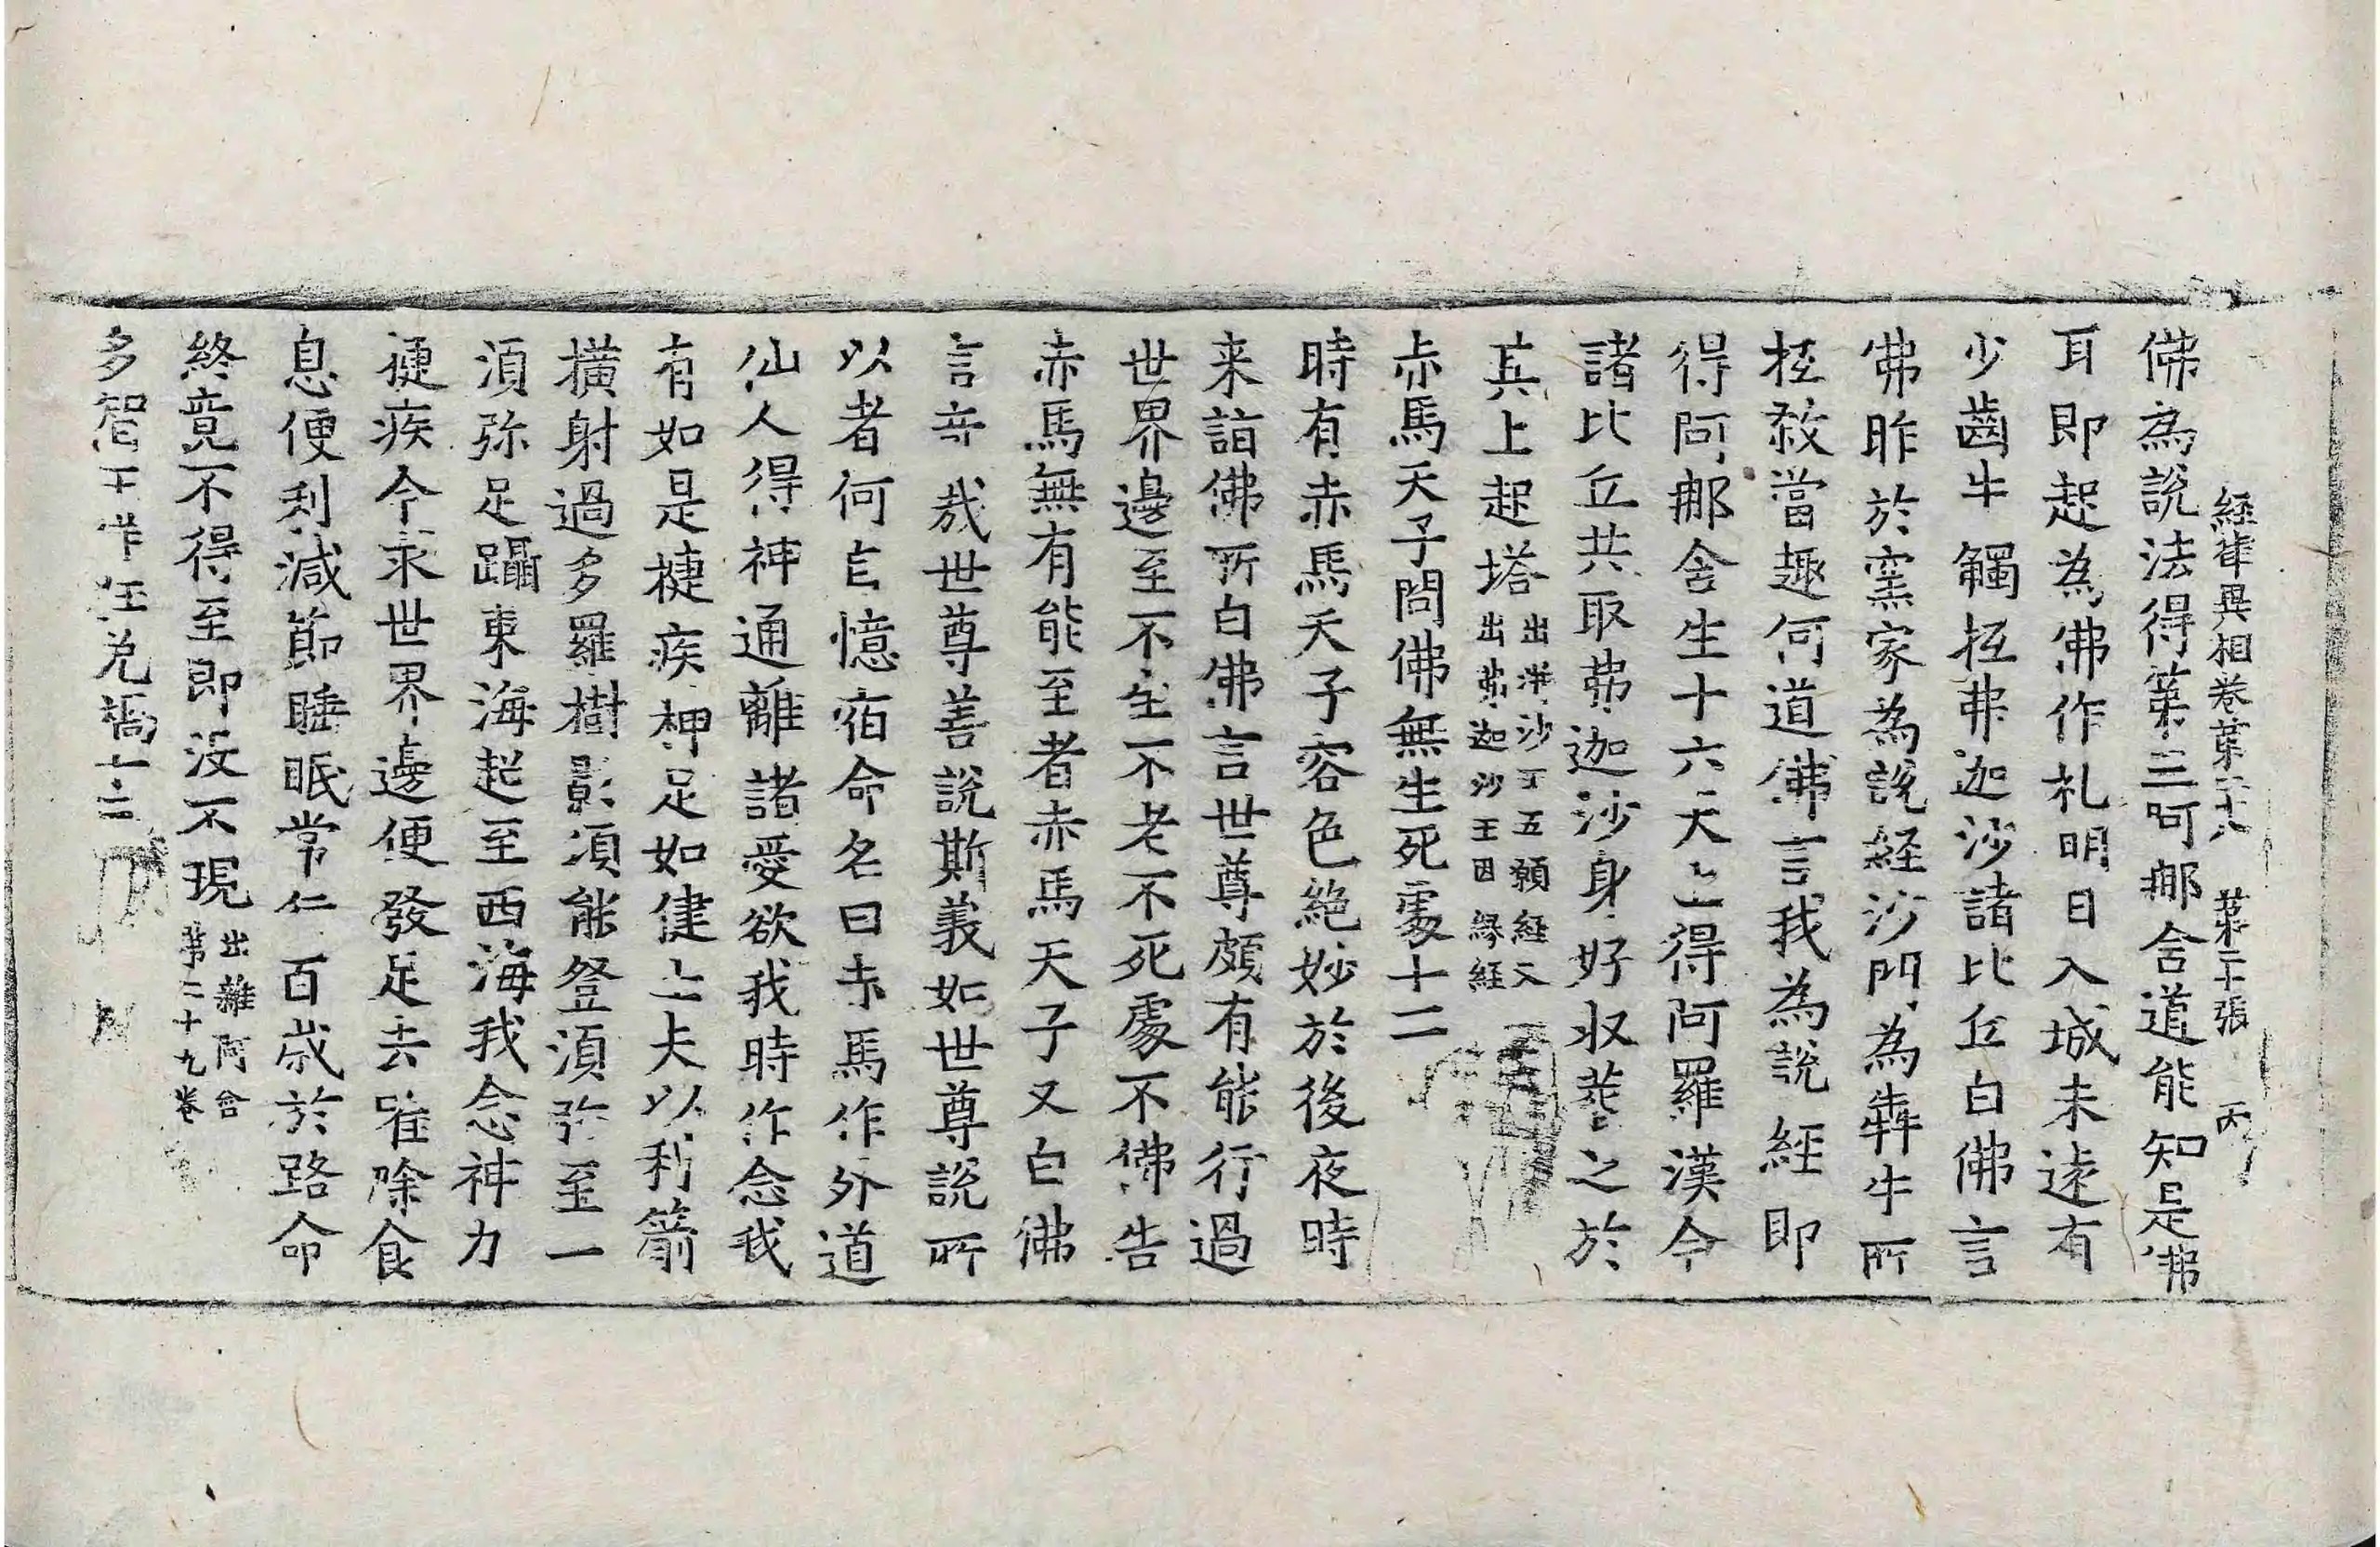 經律異相卷苐二十八 苐二十張 丙
佛為說法得苐三阿那含道能知是佛
耳即起為佛作礼明日入城未逺有
少齒牛觸抵弗迦沙諸比丘白佛言
佛昨於窯家為說経沙門為犇牛所
抵煞當趣何道佛言我為說經即
得阿那含生十六天上得阿羅漢令
諸比丘共取弗迦沙身好収𦵏之於
其上起塔出蓱沙王五願経又
出弗迦沙王因縁経
赤馬天子問佛無生死處十二
時有赤馬天子容色絶妙於後夜時
来詣佛所白佛言世尊頗有能行過
世界邊至不生不老不死處不佛告
赤馬無有能至者赤馬天子又白佛
言奇㢤世尊善說斯義如世尊說所
以者何自憶宿命名曰赤馬作外道
仙人得神通離諸愛欲我時作念我
有如是揵疾神足如健士夫以利箭
橫射過多羅樹影湏能登湏弥至一
湏弥足躡東海起至西海我念神力
揵疾今求世界邊便發足去唯除食
息便利減節睡眠常行百歳於路命
終竟不得至即没不現出雜阿含
苐二十九卷
多智王佯狂免禍十三